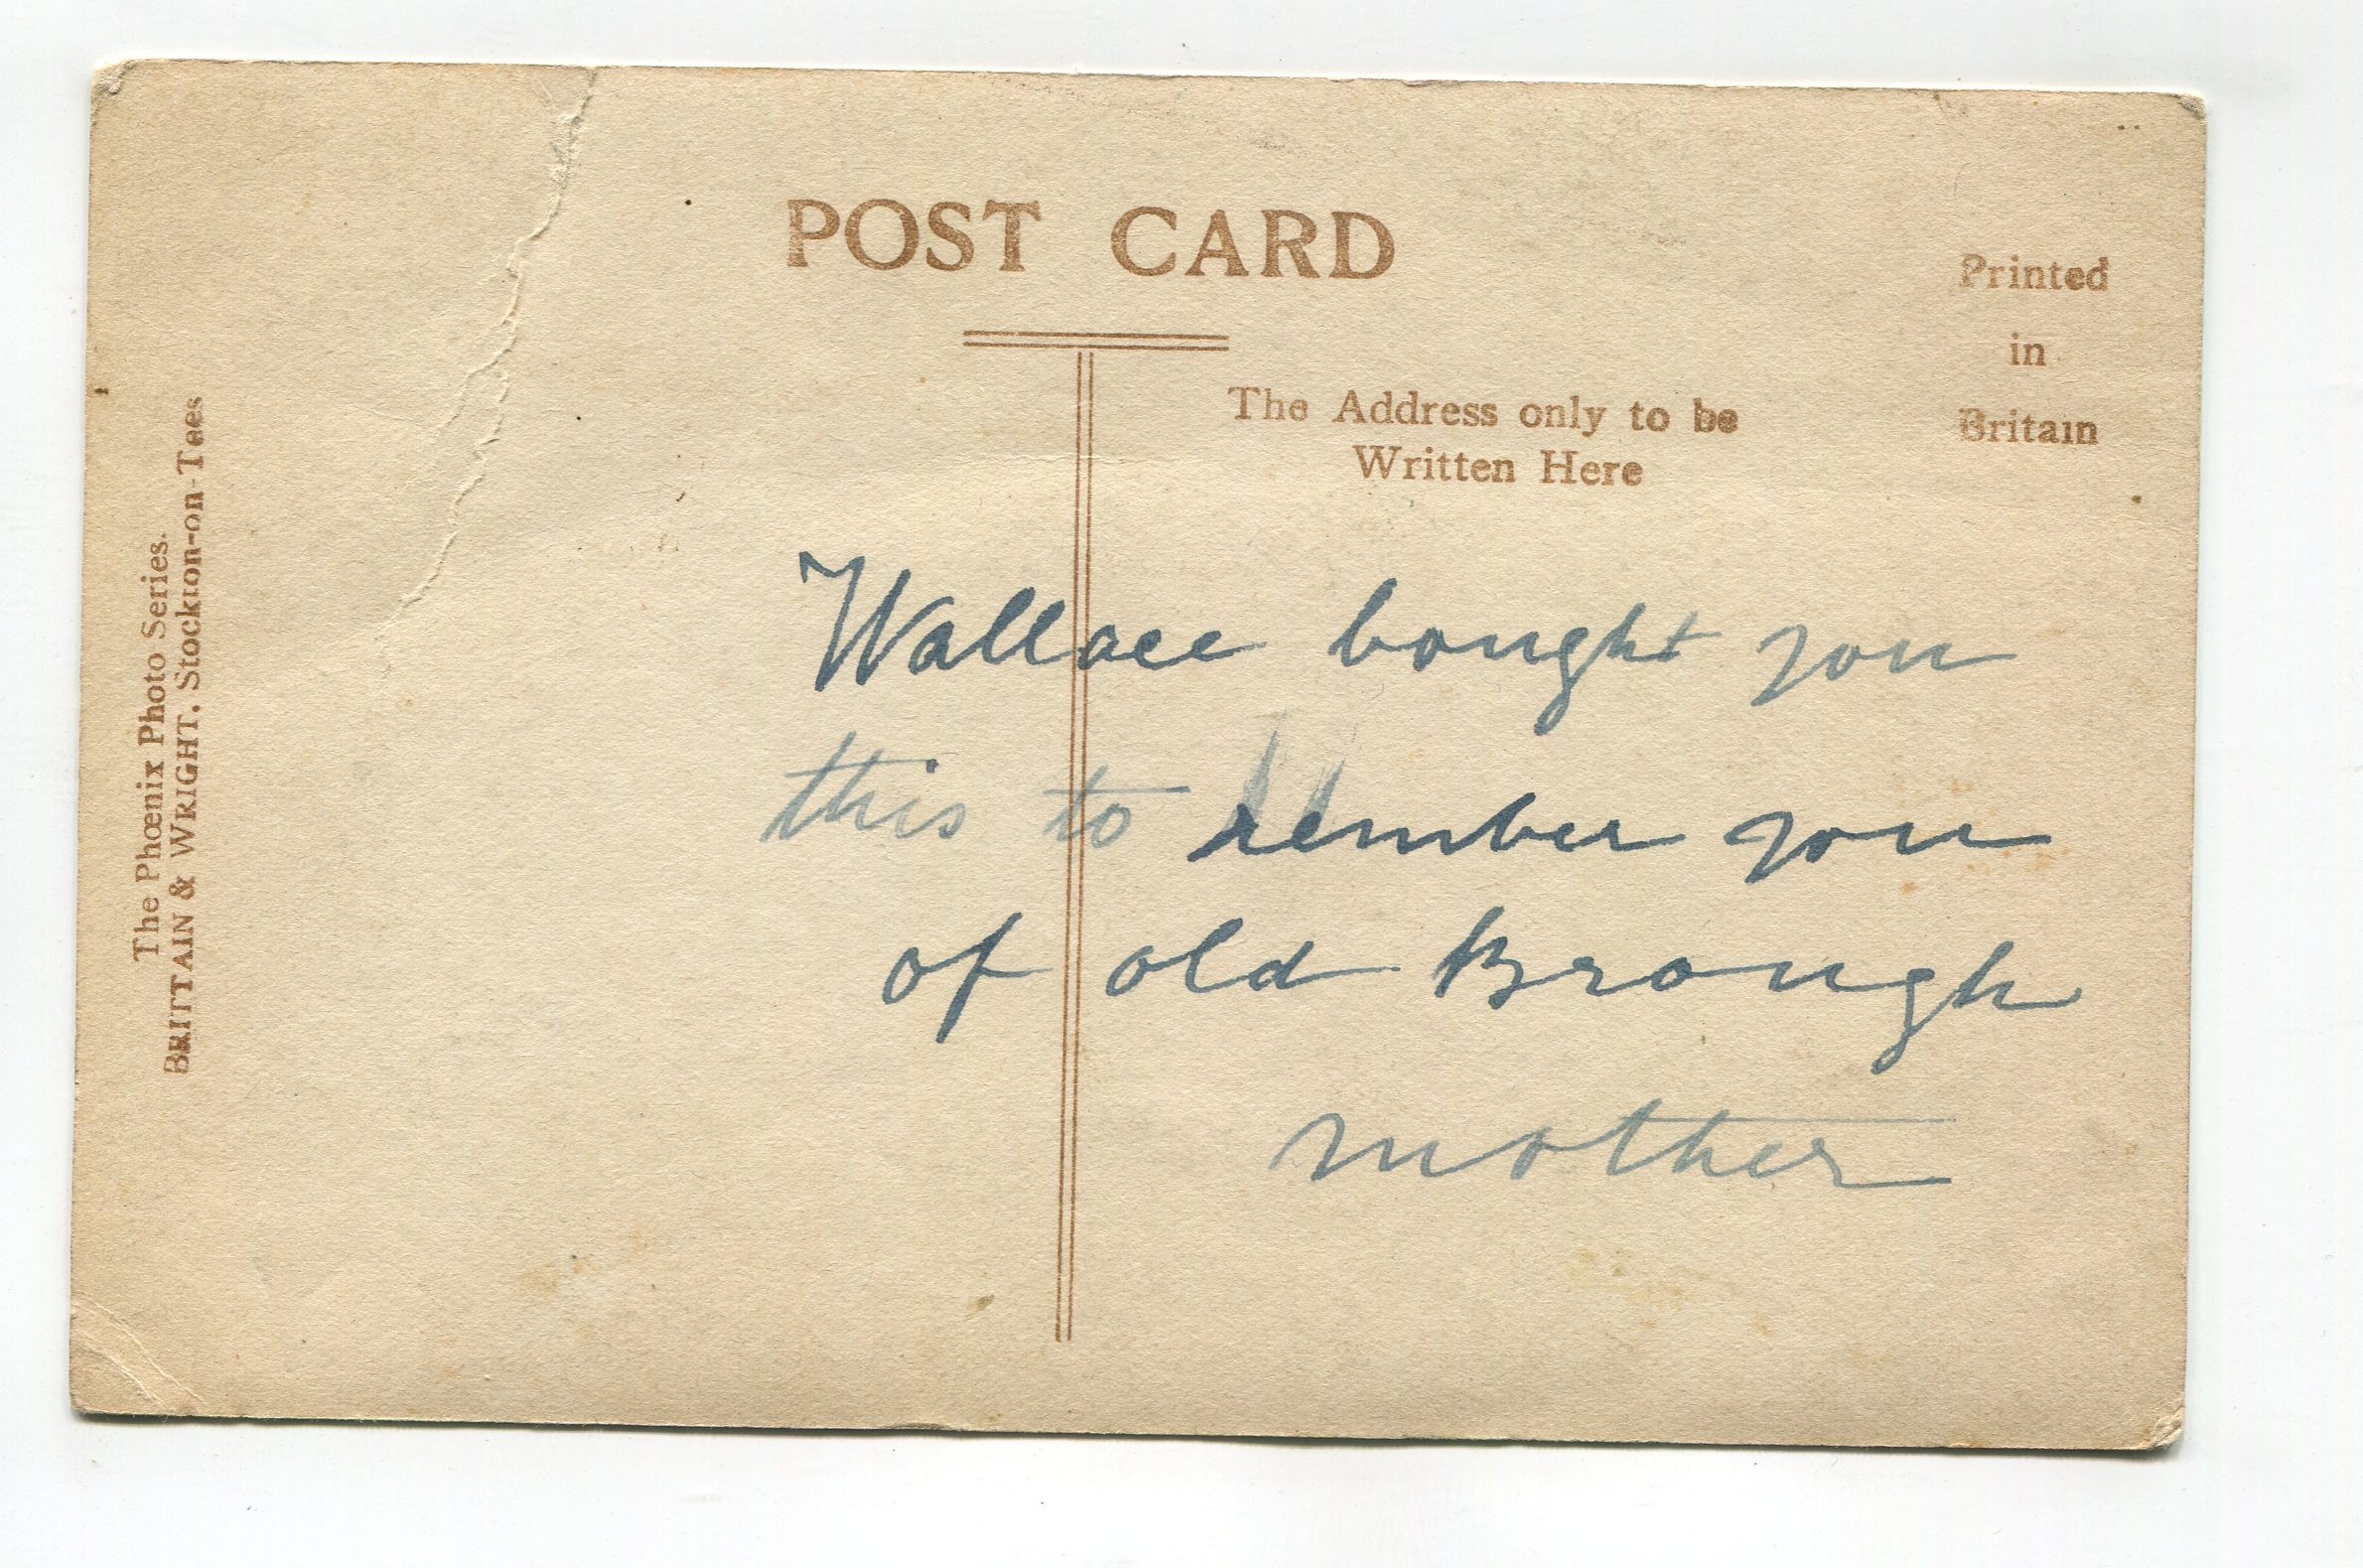 POST CARD
Printed
in
Britain
The Address only to be
Written Here
The Phœnix Photo Series.
BRITTAIN & WRIGHT. Stockton-on-Tees
Wallace bought you
this to rember you
of old Brough
mother